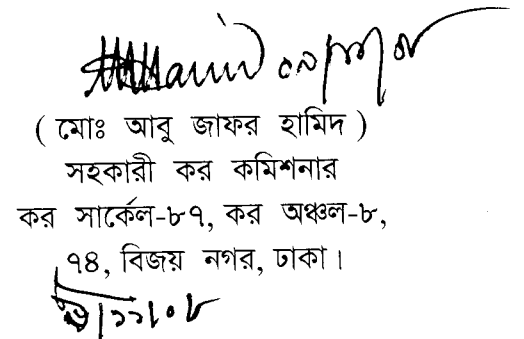 ( মোঃ আবু জাফর হামিদ )
সহকারী কর কমিশনার
কর সার্কেল-৮৭, কর অঞ্চল-৮,
৭৪, বিজয় নগর, ঢাকা।